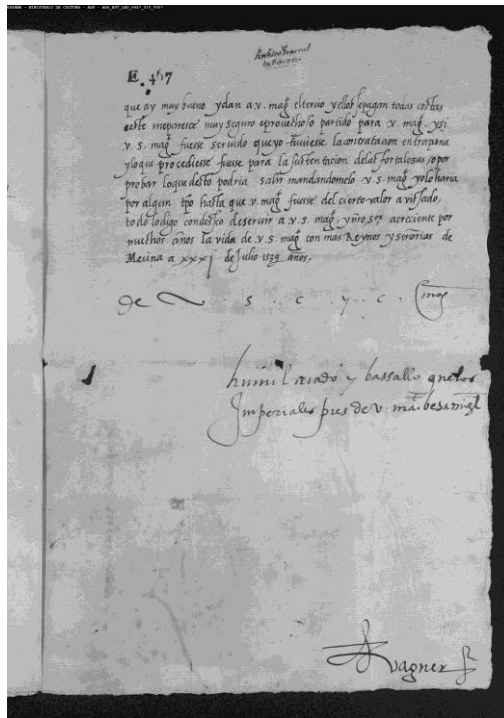 ESPAÑA - MINISTERIO DE CULTURA - AGS - AGS_EST_LEG_0467_
Archivo General
de Simancas
E. 467
que ay muy bueno y dan a v. mag̃ el tercio y ellos se pagan todas costas
este me paresce muy seguro e provechoso partido para v. mag̃. y si
v. S. mag̃. fuesse servido que yo tuviesse la contratacion en trapana
y lo que procediesse fuesse para la sustentacion de las fortalezas / o por
probar lo que desto podria salir mandandomelo v. S. mag̃ yo lo haria
por algun tp̃o hasta que v. mag̃ fuesse del cierto valor avisado,
todo lo digo con desseo de servir a v. S. mag̃. y n̄ro Señ. acreciente por
muchos años la vida de v. S. mag̃ con mas Reynos y señorias de
Mecina a xxxj de Julio 1539 años.
de v. s. c. y. c. mag̃
humil criado y bassallo que los
Imperiales pies de v. mag̃ besa
vagner